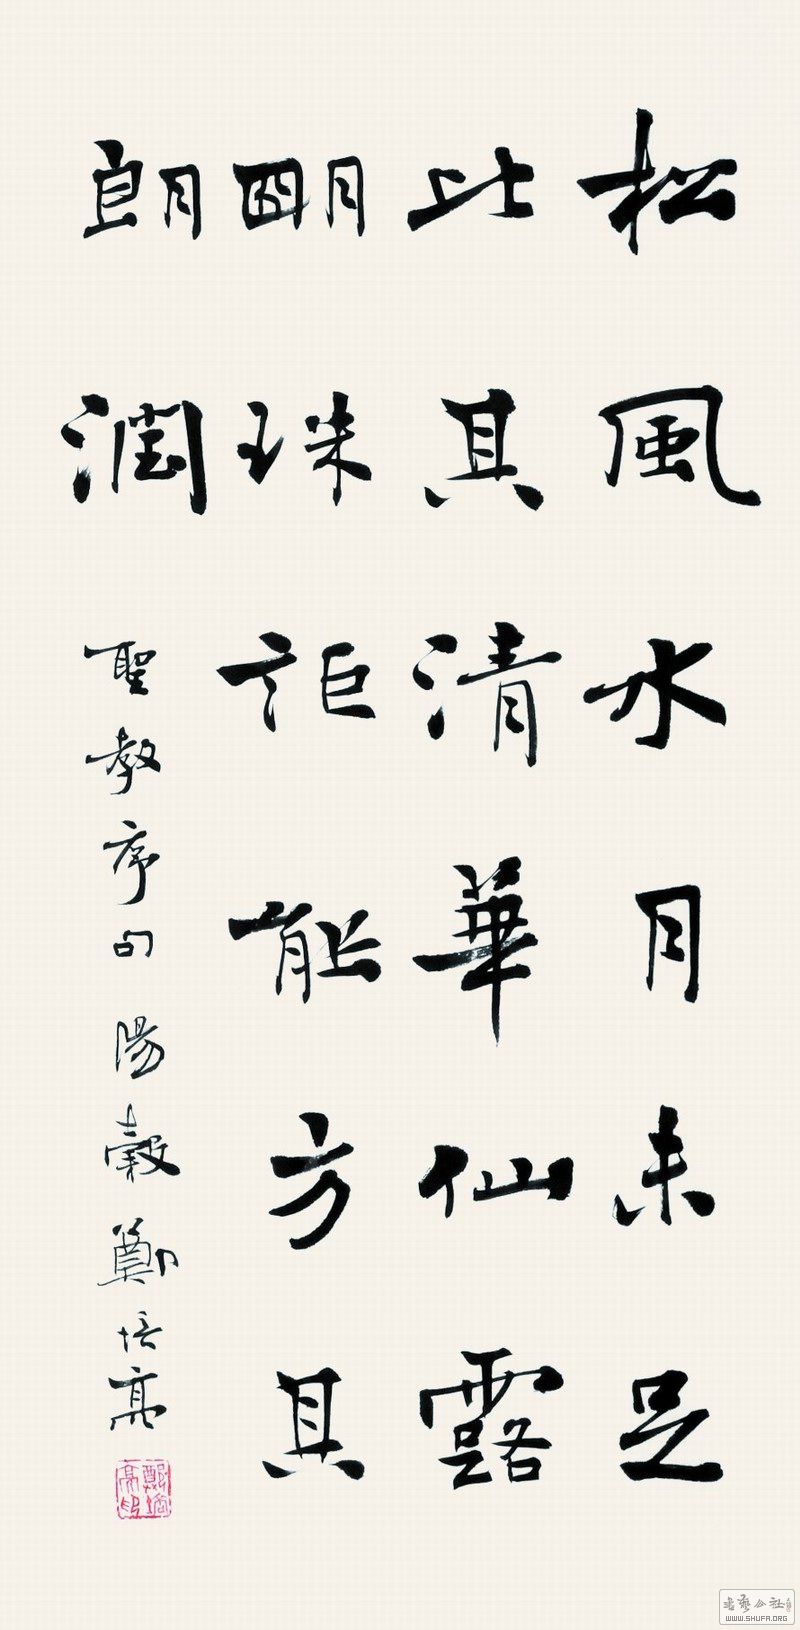 松風水月未足
比其清華仙露
明珠詎能方其
朗潤
聖教序句 陽穀鄭培亮
WWW.SHUFA.ORG